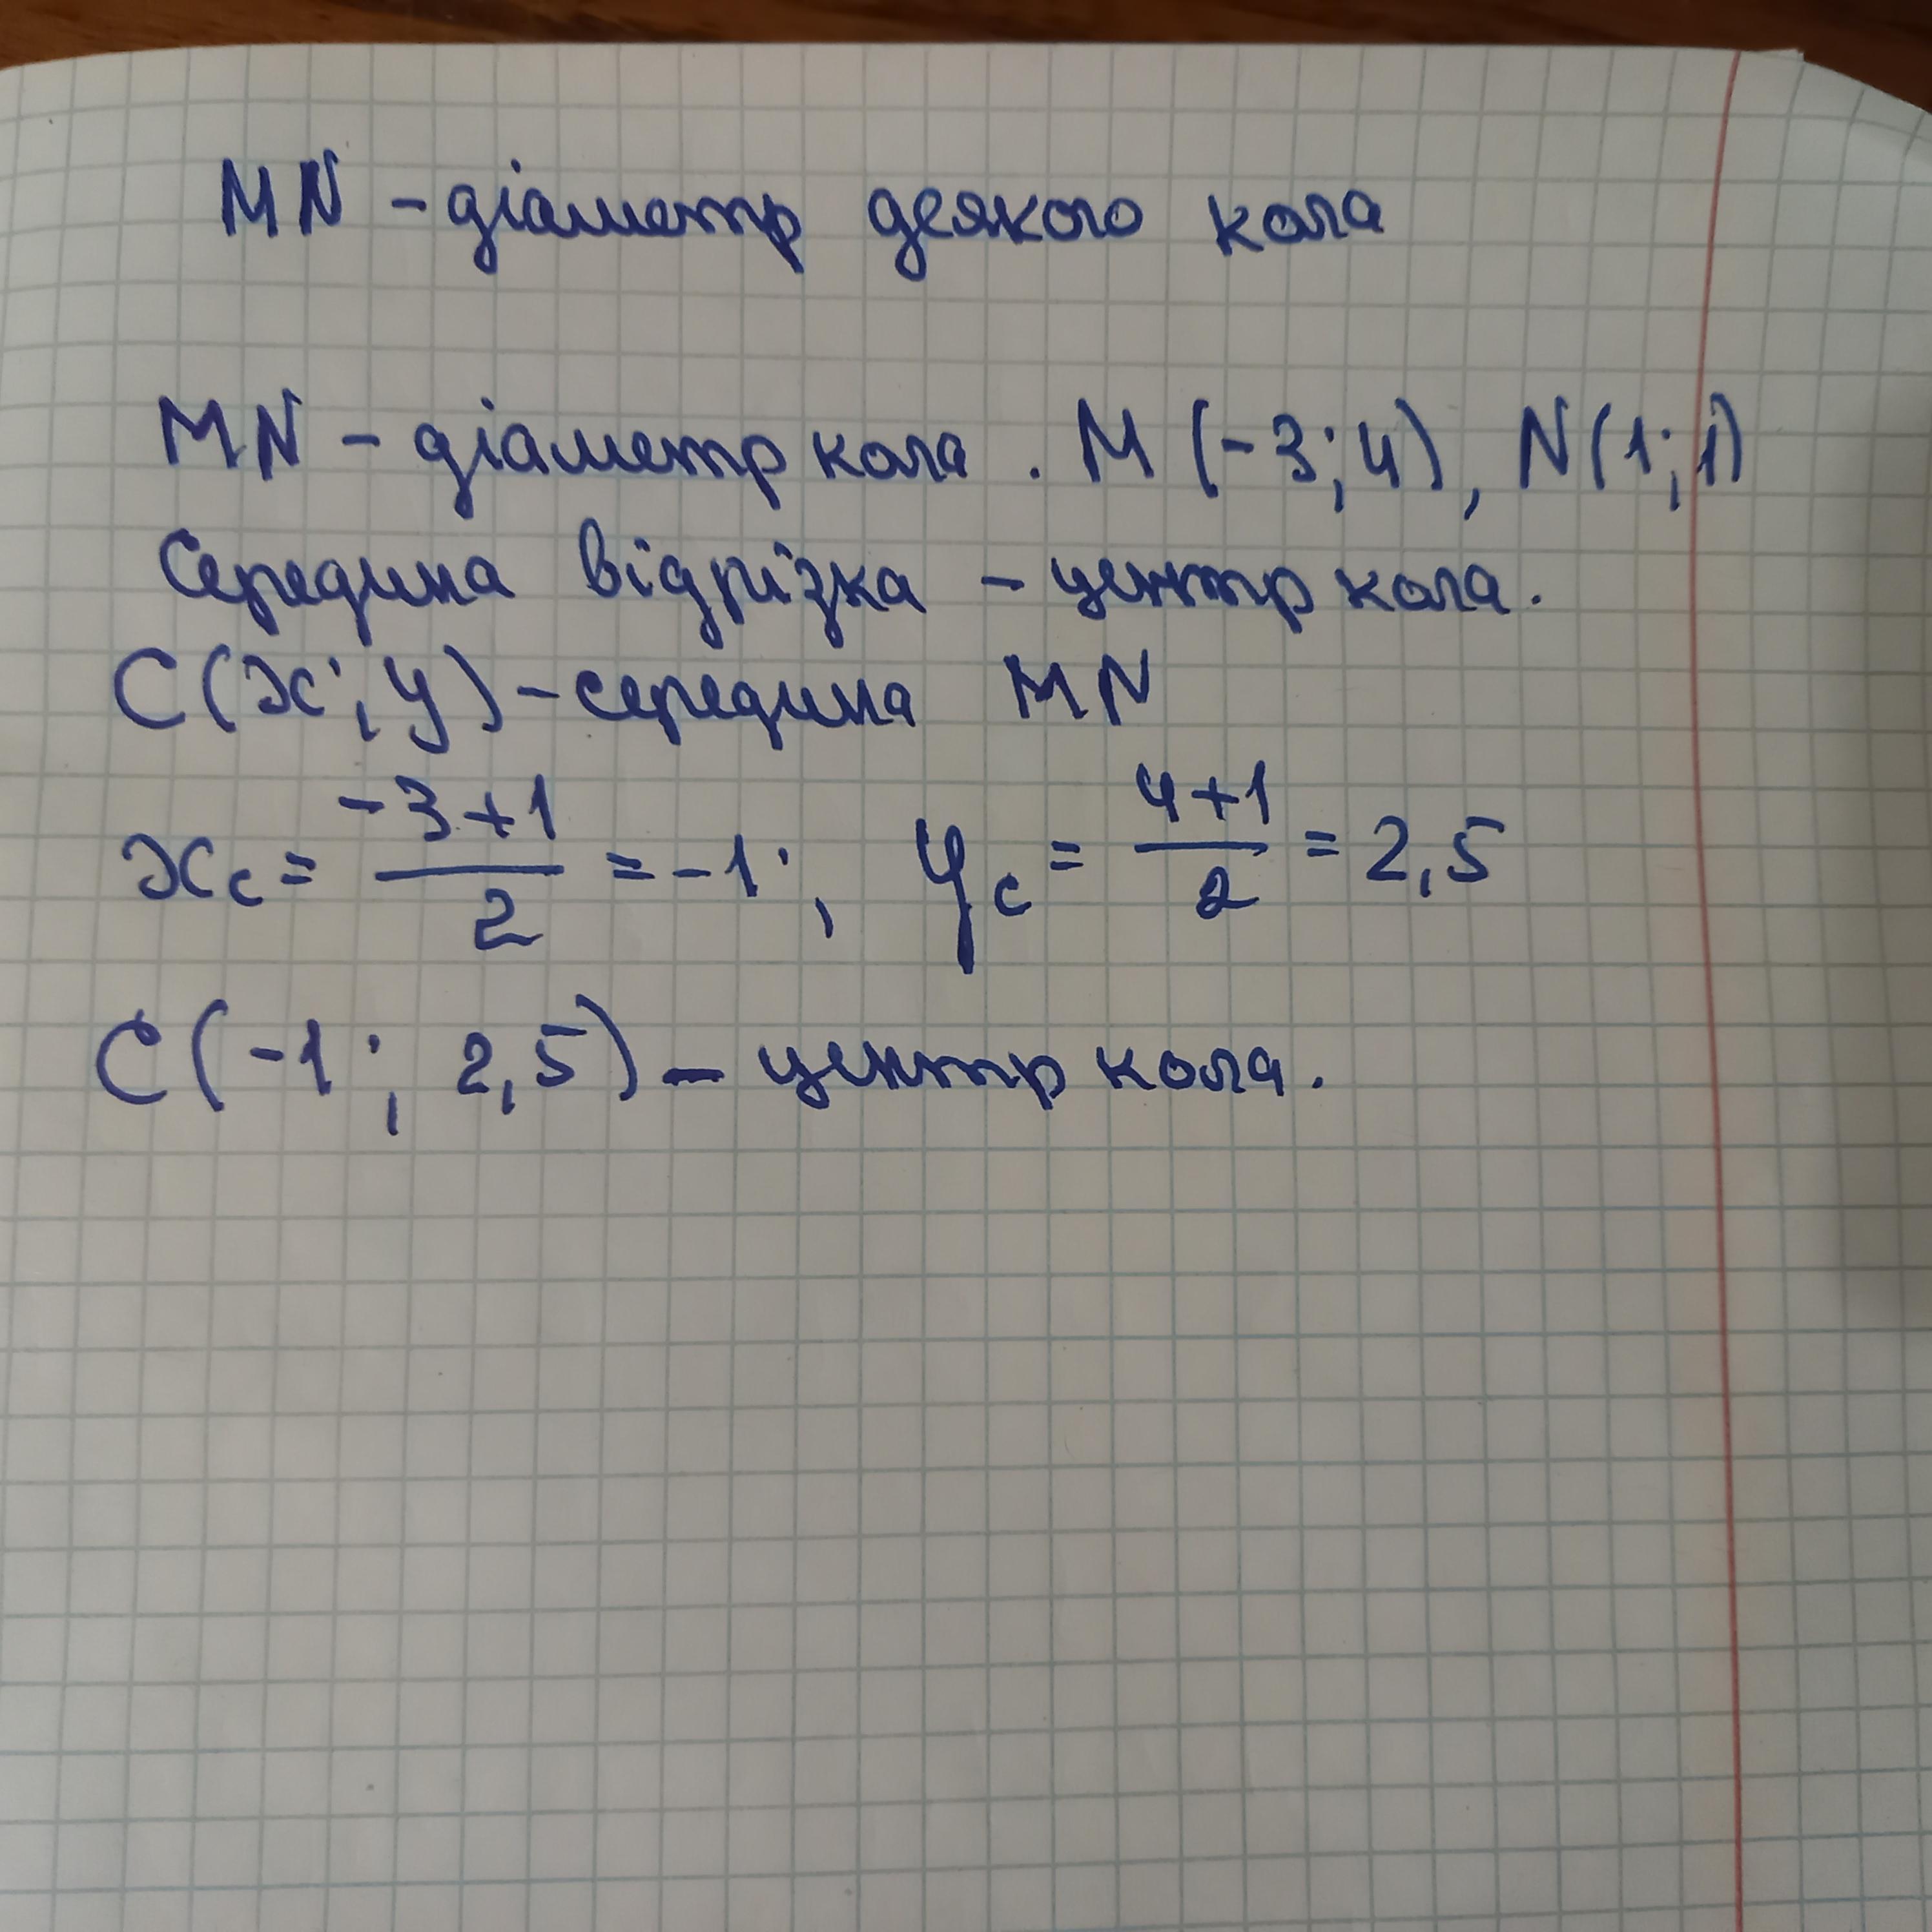 MN - діаметр деякого кола
MN - діаметр кола. M (-3; 4), N(1; 1)
Середина відрізка - центр кола.
C(x; y) - середина MN
x_c = \frac{-3+1}{2} = -1; y_c = \frac{4+1}{2} = 2,5
C(-1; 2,5) - центр кола.